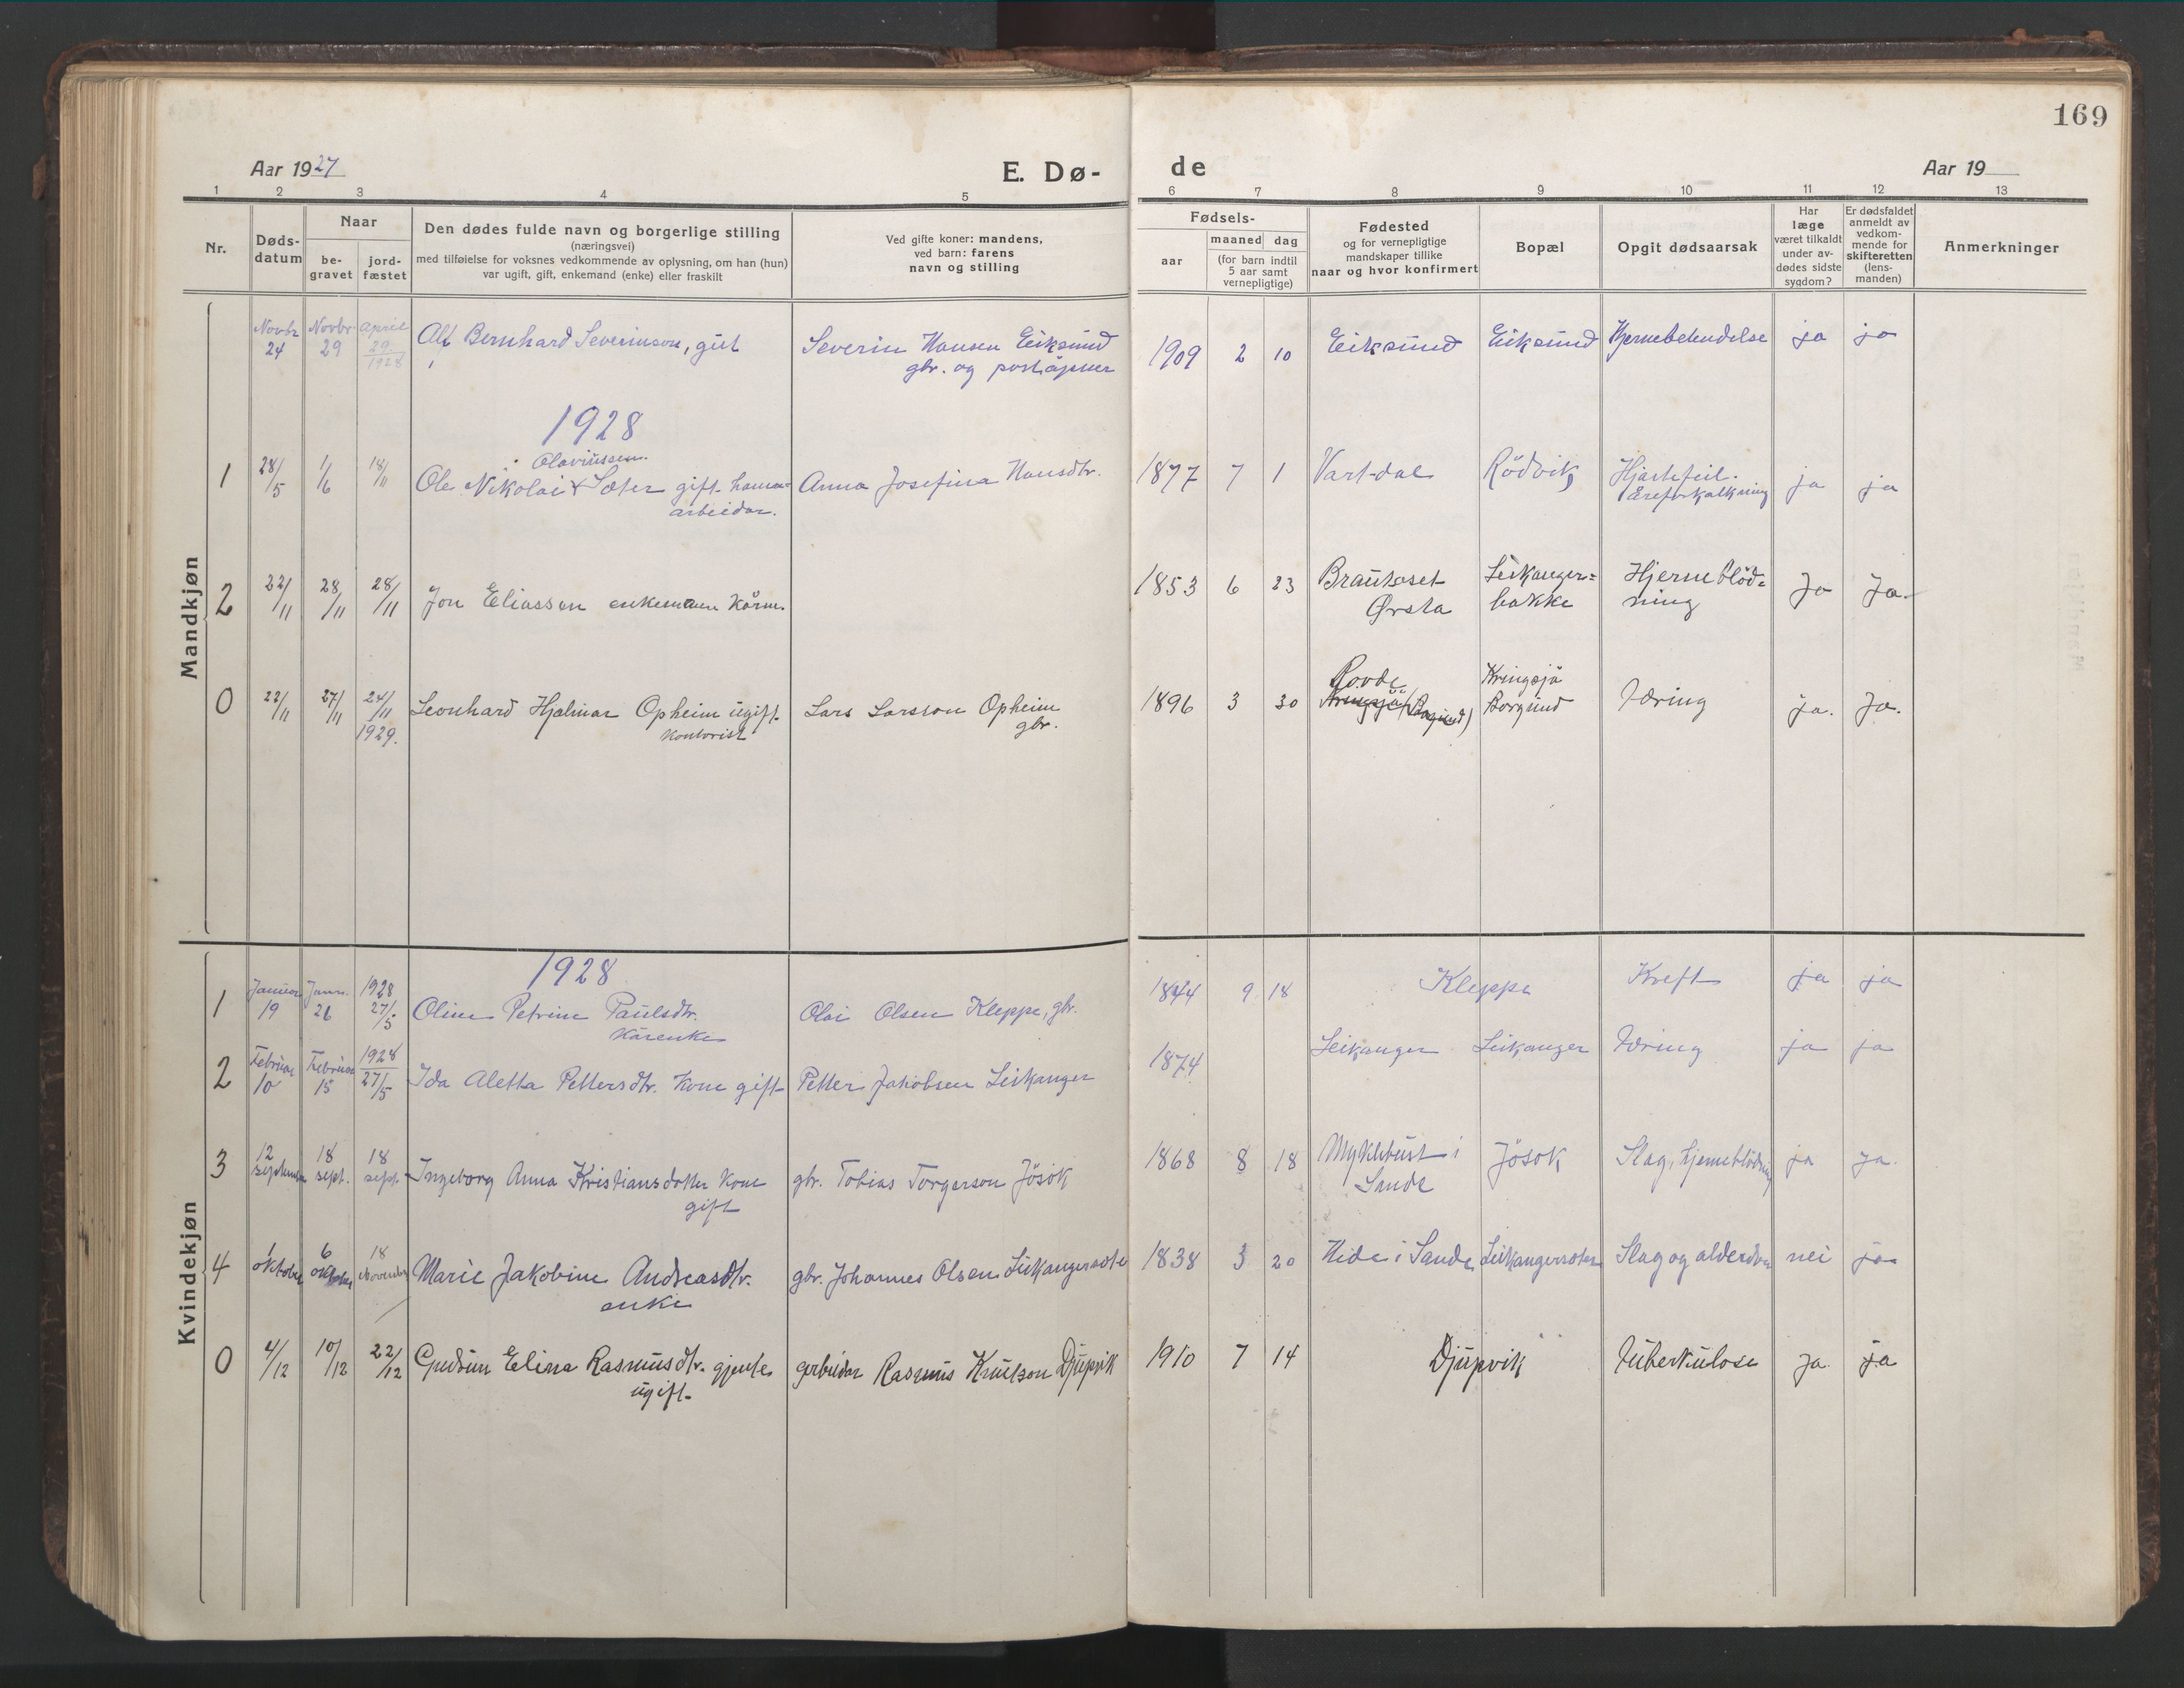 169
Aar 1927
E. Dø-
de
Aar 19
1 2 3 4 5 6 7 8 9 10 11 12 13
Nr.
Døds-
datum
Naar
be-
gravet
jord-
fæstet
Den dødes fulde navn og borgerlige stilling
(næringsvei)
med tilføielse for voksnes vedkommende av oplysning, om han (hun)
var ugift, gift, enkemand (enke) eller fraskilt
Ved gifte koner: mandens,
ved barn: farens
navn og stilling
Fødsels-
aar
maaned dag
(for barn indtil
5 aar samt
vernepligtige)
Fødested
og for vernepligtige
mandskaper tillike
naar og hvor konfirmert
Bopæl
Opgit dødsaarsak
Har
læge
været tilkaldt
under av-
dødes sidste
sygdom?
Er dødsfaldet
anmeldt av
vedkom-
mende for
skifteretten
(lens-
manden)
Anmerkninger
Mandkjøn
Novbr 24 Novbr. 29 April 29 1928 Alf Bernhard Severinson, gut Severin Hansen Eiksund
gbr. og poståpner
1909 2 10 Eiksund Eiksund ja ja
1928
Olaviussen.
1 28/5 1/6 18/11 Ole Nikolai Sæter gift hamn=
arbeidar.
Anna Josefina Hansdtr. 1877 7 1 Vartdal Rödvik Hjartefeil.
åreforkalkning
ja ja
2 22/11 28/11 28/11 Jon Eliassen enkemann kårm. 1853 6 23 Brautaset
Ørsta
Leikanger=
bakke
Hjerneblöd=
ning
Ja Ja.
0 22/11 27/11 24/11 1929. Leonhard Hjalmar Opheim ugift
Kontorist
Lars Larsson Opheim
gbr.
1896 3 30 Rovde
Kringsjå (Borgund)
Kringsjå
Borgund
Tæring ja. Ja.
Kvindekjøn
1928
1 Januar 19 Janr. 26 1928 27/5 Oline Petrine Paulsdtr.
Kårenke
Olai Olsen Kleppe, gbr. 1844 9 18 Kleppe Kreft ja ja
2 Februar 10 Februar 15 1928 27/5 Ida Aletta Pettersdtr. kone gift Petter Jakobsen Leikanger 1874 Leikanger Leikanger Tæring ja ja
3 12 september 18 sept. 18 sept. Ingeborg Anna Kristiansdotter kone
gift
gbr. Tobias Torgerson Jösok 1868 8 18 Myklebust i
Sande
Jösok Slag, hjerneblödning ja ja.
4 1 oktober 6 oktober 18 November Marie Jakobine Andreasdtr.
enke
gbr. Johannes Olsen Leikangersæter 1838 3 20 Hide i Sande Leikangersæter Slag og alderdom nei ja
0 4/12 10/12 22/12 Gudrun Elina Rasmusdtr. gjente
ugift
arbeidar Rasmus Knutson Djupvik 1910 7 14 Djupvik Tuberkulose ja. ja